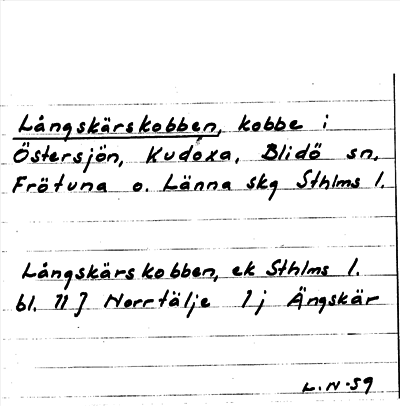 Långskärskobben, kobbe i
Östersjön, Kudoxa, Blidö sn,
Frötuna o. Länna skg Sthlms l.
Långskärskobben, ek Sthlms l.
bl. 11 J Norrtälje 1 j Ängskär
L.N-59